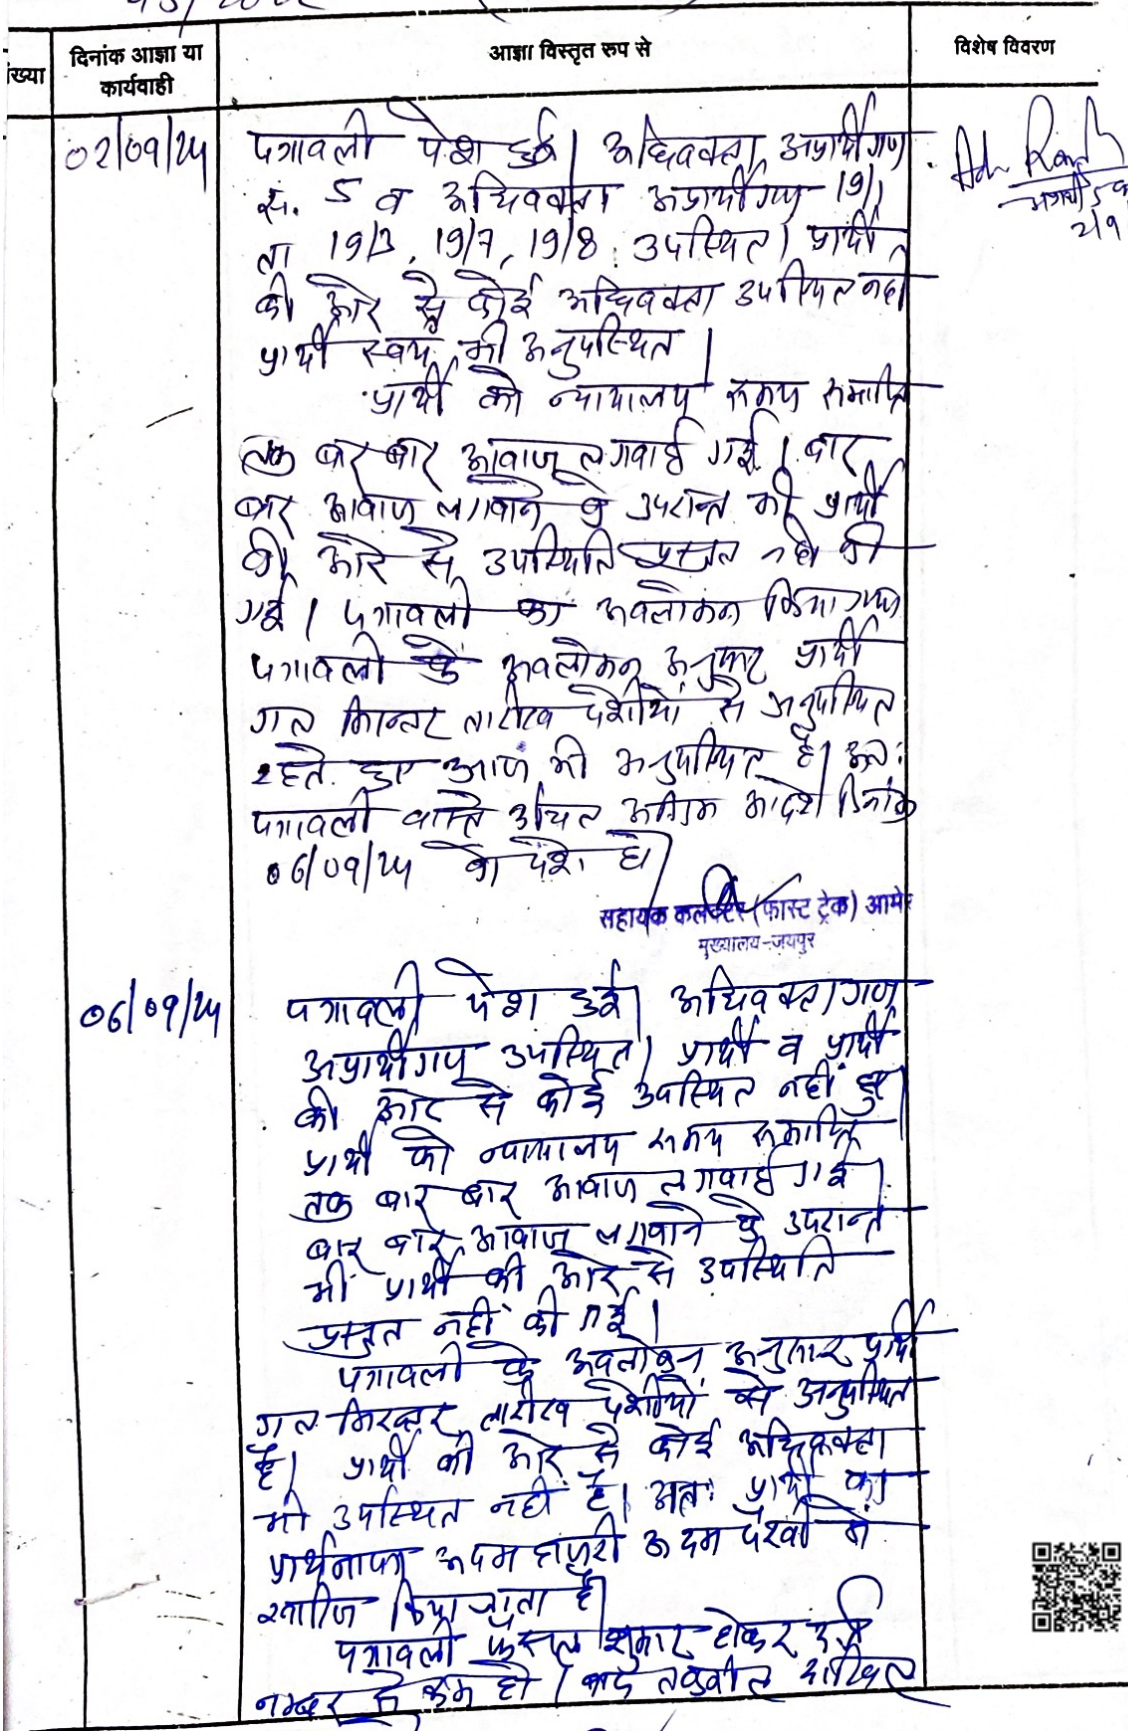 ख्या
दिनांक आज्ञा या
कार्यवाही
आज्ञा विस्तृत रूप से
विशेष विवरण
02/09/24
पत्रावली पेश हुई। अधिवक्ता अप्रार्थीगण
सं. 5 व अधिवक्ता अप्रार्थीगण 19/1
ता 19/3, 19/7, 19/8 उपस्थित। प्रार्थी
की ओर से कोई अधिवक्ता उपस्थित नहीं
प्रार्थी स्वयं भी अनुपस्थित।
प्रार्थी को न्यायालय समय समाप्ति
तक बार बार आवाज लगवाई गई। बार
बार आवाज लगवाने के उपरान्त भी प्रार्थी
की ओर से उपस्थिति प्रस्तुत नहीं की
गई। पत्रावली का अवलोकन किया गया
पत्रावली के अवलोकन अनुसार प्रार्थी
गत निरन्तर तारीख पेशीयों से अनुपस्थित
रहते हुए आज भी अनुपस्थित है। अतः
पत्रावली वास्ते उचित अग्रिम आदेश दिनांक
06/09/24 को पेश हो।
Adv
2/9
सहायक कलेक्टर (फास्ट ट्रेक) आमेर
मुख्यालय-जयपुर
06/09/24
पत्रावली पेश हुई। अधिवक्तागण
अप्रार्थीगण उपस्थित। प्रार्थी व प्रार्थी
की ओर से कोई उपस्थित नहीं हुए।
प्रार्थी को न्यायालय समय समाप्ति
तक बार बार आवाज लगवाई गई।
बार बार आवाज लगवाने के उपरान्त
भी प्रार्थी की ओर से उपस्थिति
प्रस्तुत नहीं की गई।
पत्रावली के अवलोकन अनुसार प्रार्थी
गत निरन्तर तारीख पेशीयों से अनुपस्थित
है। प्रार्थी की ओर से कोई अधिवक्ता
भी उपस्थित नहीं है। अतः प्रार्थी का
प्रार्थनापत्र अदम हाजरी अदम पैरवी में
खारिज किया जाता है।
पत्रावली फैसल शुमार होकर दर्ज
नम्बर से कम हो। बाद तकमील दाखिल